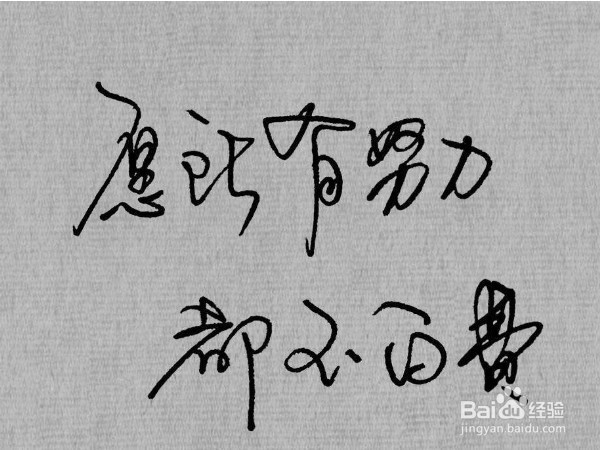 愿所有努力
都不白费
Baidu经验
jingyan.baidu.com